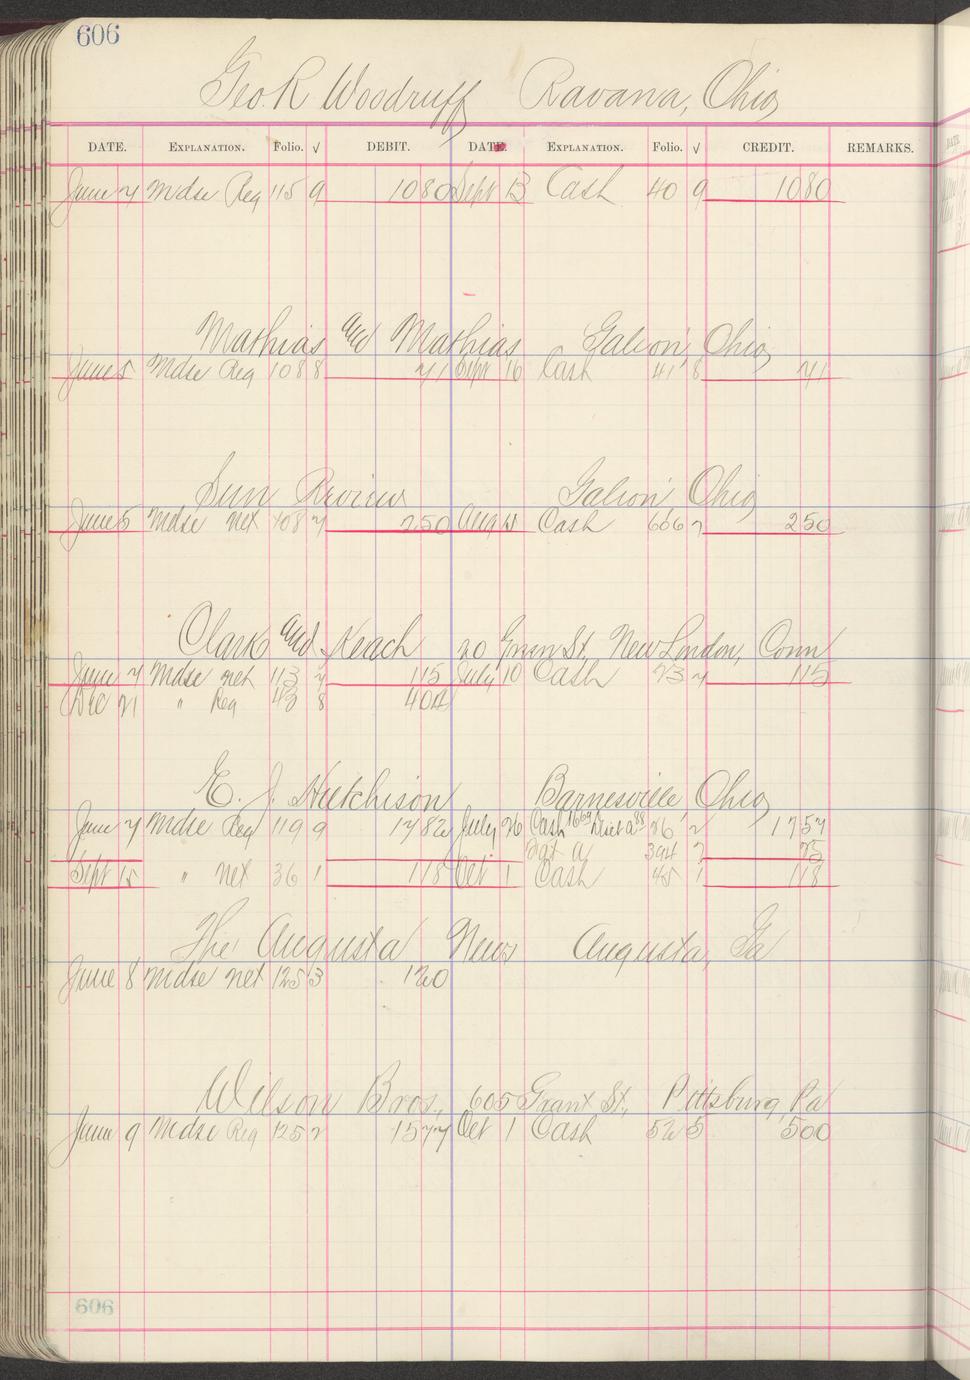 606
Geo. R Woodruff Ravana, Ohio
DATE. EXPLANATION. Folio. √ DEBIT. DATE. EXPLANATION. Folio. √ CREDIT. REMARKS.
June 7 Mdse Reg 115 9 1080 Sept 13 Cash 40 9 1080
Mathias and Mathias Galion, Ohio
June 5 Mdse Reg 108 8 71 Sept 16 Cash 41 8 71
Sun Review Galion Ohio
June 5 Mdse net 108 7 250 Aug Cash 666 7 250
Clark and Keach 20 Green St, New London, Conn
June 7 Mdse net 113 7 115 July 10 Cash 73 7 115
Dec 21 " Reg 43 8 404
E. J. Hutchison Barnesville, Ohio
June 7 Mdse Reg 119 9 1782 July 26 Cash 1669 Disct 88 26 2 1757
394 2 25
Sept 15 " net 36 1 118 Oct 1 Cash 45 1 118
The Augusta News Augusta, Ga
June 8 Mdse net 125 3 120
Wilson Bros., 605 Grant St., Pittsburg, Pa
June 9 Mdse Reg 125 2 1577 Oct 1 Cash 52 5 500
606